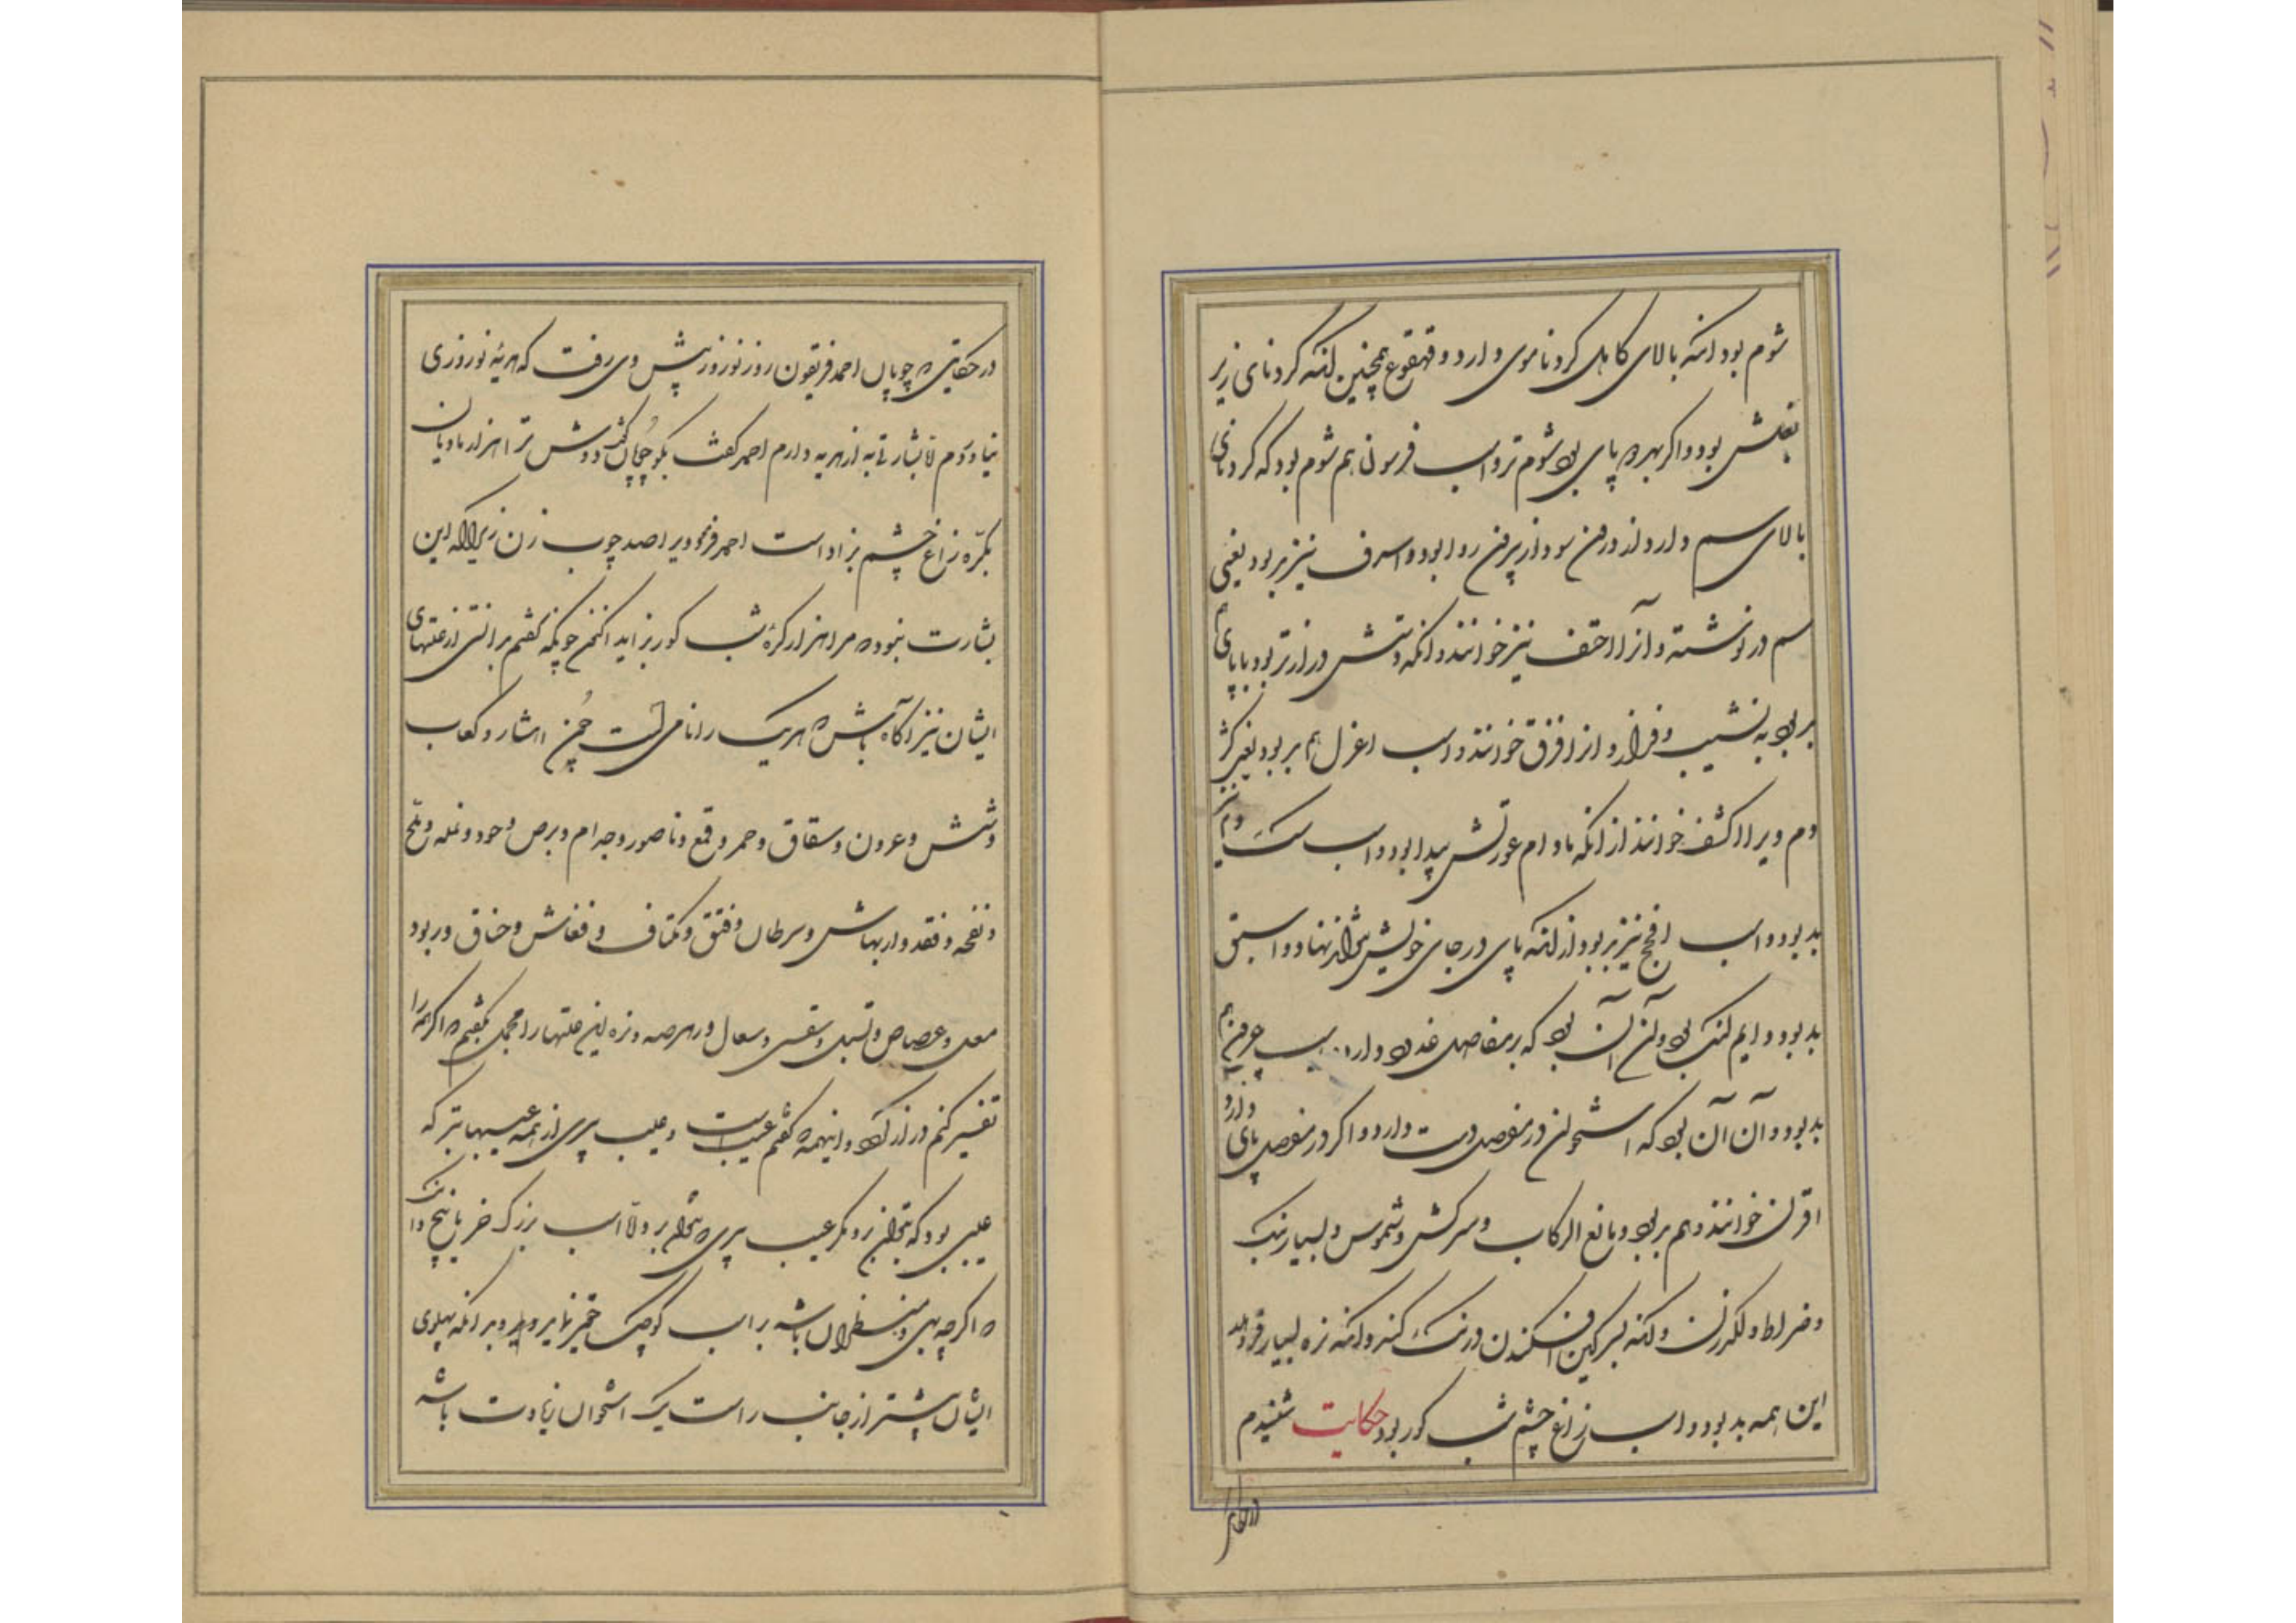 شوم بود آنکه بالای کاهل گردنا موی دارد و قهقوع همچنین آنکه گردنای زیر
بغلش بود و اگر بهر دو پای بود شوم‌تر و اسب فرسون هم شوم بود که گردنای
بالای سم دارد از درون سو و از بیرون روا بود و اسرف نیز بد بود یعنی
سم در نوشته و آنرا احنف نیز خوانند و آنکه دستش درازتر بود یا پای هم
بد بود به نشیب و فراز و آنرا افرق خوانند و اسب اعزل هم بد بود یعنی کژ
دم ویرا اکشف خوانند از آنکه مادام عورتش پیدا بود و اسب سگ دم نیز
بد بود و اسب افحج نیز بد بود از آنکه پای در جای خویش نتواند نهاد و اسب
بد بود دایم لنگ بود و آن آن بود که بر مفاصل غدود دارد اسب عرون هم
بد بود و آن آن بود که استخوان در مفصل دست دارد و اگر در مفصل پای دارد
اقرن خوانند و هم بد بود و مانع الرکاب و سرکش و شموس و بسیار بانگ
و ضراط و لگدزن و آنکه بسرگین افکندن درنگ کند و آنکه نره بسیار فروهلد
این همه بد بود و اسب زاغ چشم شب کور بود حکایت شنیدم
در حکایتی
در حکایتی که چوپان احمد فریغون روز نوروز پیش وی رفت که هدیه نوروزی
نیاوردم تا بشارتی به از هدیه دارم احمد گفت بگو چوپان گفت دوش ترا هزار مادیان
بکره زاغ چشم بزاد است احمد فرمود ویرا صد چوب زن زیرا که این
بشارت نبود که مرا هزار کره شب کور بزاید اکنون چونکه گفتم بدانستی از علتهای
ایشان نیز آگاه باش که هر یک را نامی است چون انتشار و کعاب
و مشش و عرون و سقاق و حمر و قمع و ناصور و جرام و برص و حود و نمله و ملح
و نفحه و فقد و ارتهاش و سرطان و فتق و کتاف و قفاش و خناق و دربود
معل و عصاص و سل و سقس و سعال و رهصه و زه این علتها را مجمل بگفتم که اگر همه را
تفسیر کنم دراز گردد و اینهمه که گفتم عیب است و عیب پیری از همه عیبها بتر که
عیبی بود که بتوان زد و مگر عیب پیری که نتوان برد و اما اسب بزرگ خر تا پنج دانگ
که اگر چه بهی و منظران باشد بر اسب کوچک حقیر نماید و دیگر بدانکه پهلوی
ایشان بیشتر از جانب راست یک استخوان زیادت باشد